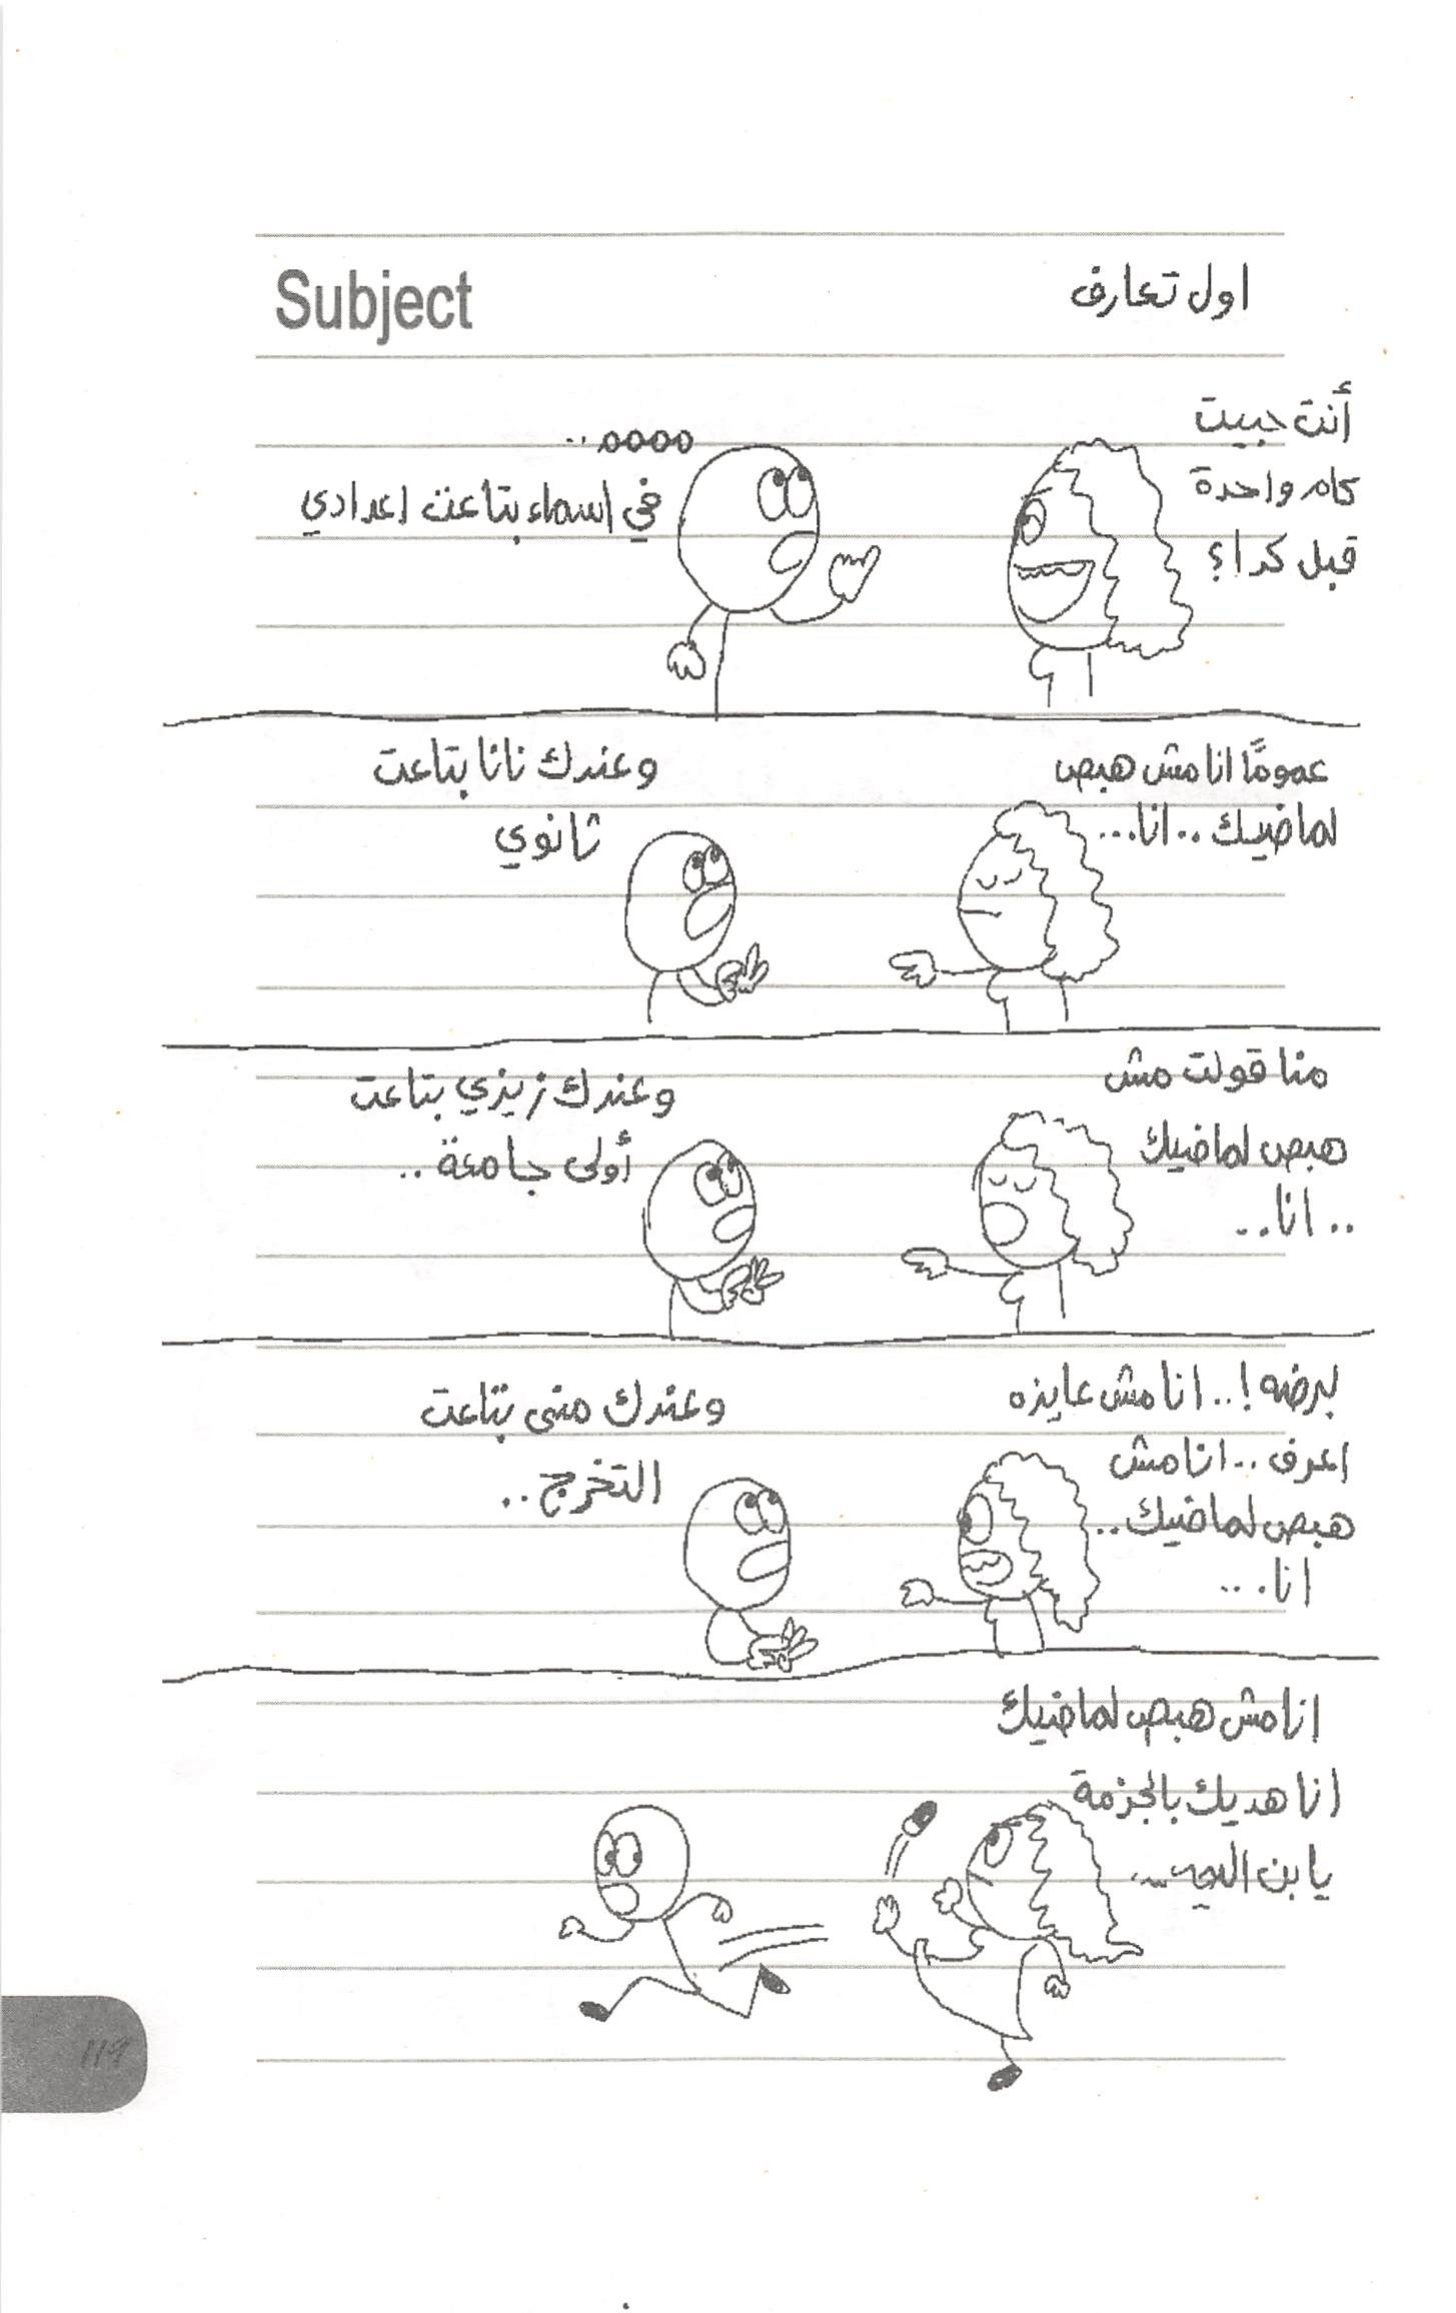 Subject
اول تعارف
أنت حبيت
كام واحدة
قبل كدا؟
ههههه..
في اسماء بتاعت اعدادي
عمومًا انا مش هبص
لماضيك .. انا...
وعندك نانا بتاعت
ثانوي
منا قولت مش
هبص لماضيك
.. انا..
وعندك زيزي بتاعت
أولى جامعة ..
برضه !.. انا مش عايزه
اعرف .. انا مش
هبص لماضيك ..
انا...
وعندك منى بتاعت
التخرج ..
انا مش هبص لماضيك
انا هديك بالجزمة
يا بن
119